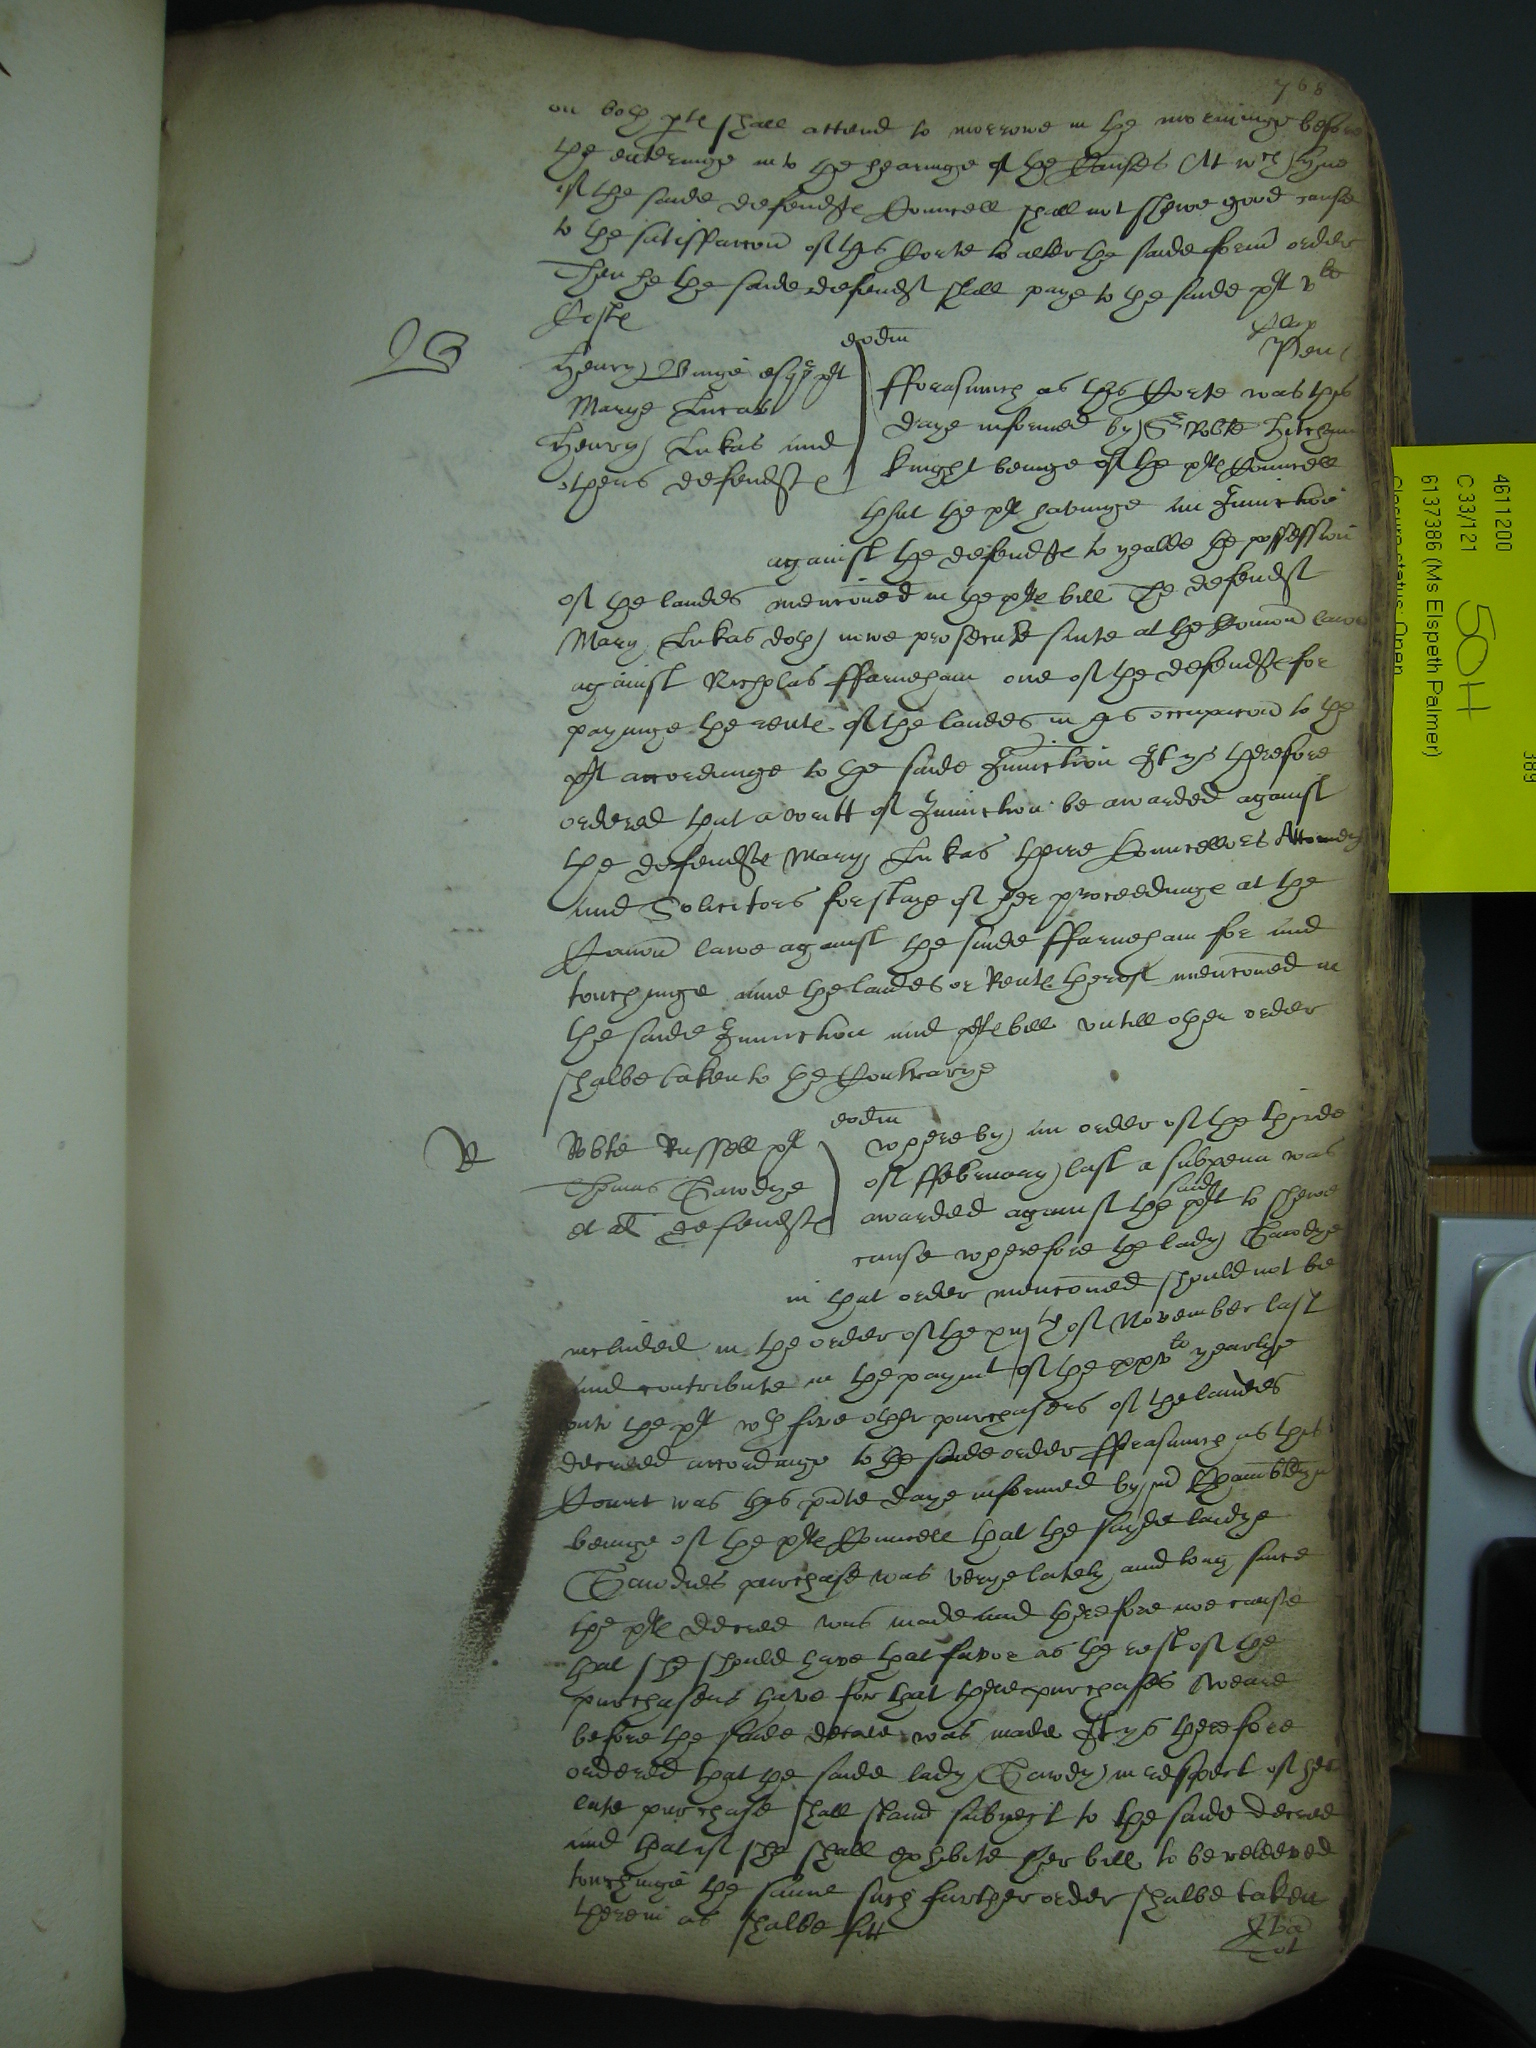 768
on both ptes shall attend to morrowe in the morninge before
the entringe into the hearinge of the Causes At wch tyme
if the saide defendtes Councell shall not shewe good cause
to the satisfaccon of this Corte to alter the saide form order
Then he the saide defendt shall paye to the saide plt
Costes
eodm
Henry esqr plt
Marye Lucas
Henry Lukas and
others defendtes
fforasmuch as this Corte was this
daye informed by Sr Robte Hitcham
knight beinge of the pltes Councell
that the plt havinge an Iniunction
against the defendtes to yealde the possession
of the landes mencioned in the pltes bill The defendt
Mary Lukas doth nowe prosecute suite at the Comon lawe
against Nicholas ffarneham one of the defendtes for
payinge the rente of the landes in his occupacon to the
plt accordinge to the saide Iniunction It ys therefore
ordered that a writt of Iniunction be awarded against
the defendte Mary Lukas there Councellors Attorneys
and Solicitors for staye of her proceedinge at the
Comon lawe against the saide ffarneham for and
touchinge anie the landes or Rente therof mencioned in
the saide Iniunction and pltes bill untill other order
shalbe taken to the Contrarye
R
eodm
Robte Russell plt
Thomas Gawdye
et al defendtes
whereby an order of the thirde
of ffebruary last a subpena was
awarded against the said plt to shewe
cause wherefore the lady Gawdye
in that order mencioned should not be
included in the order of the xiijth of November last
and contribute in the paymt of the xxxli yearlye
unto the plt wth five other purchasers of the landes
decreed accordinge to the saide order fforasmuch as this
Court was this pnte daye informed by mr Chamberlyn
beinge of the pltes Councell that the sayde ladye
Gawdies purchase was verye lately and long since
the pltes decree was made and therefore noe cause
that she should have that favor as the rest of the
purchasers have for that there purchases weare
before the saide decree was made It ys therefore
ordered that the saide lady Gawdy in respect of her
late purchase shall stand subiect to the saide decree
and that if she shall exhibite her bill to be releeved
touchinge the same such further order shalbe taken
therein as shalbe fitt
4611200
C 33/121
50H
6137386 (Ms Elspeth Palmer)
Closure status: Open
389